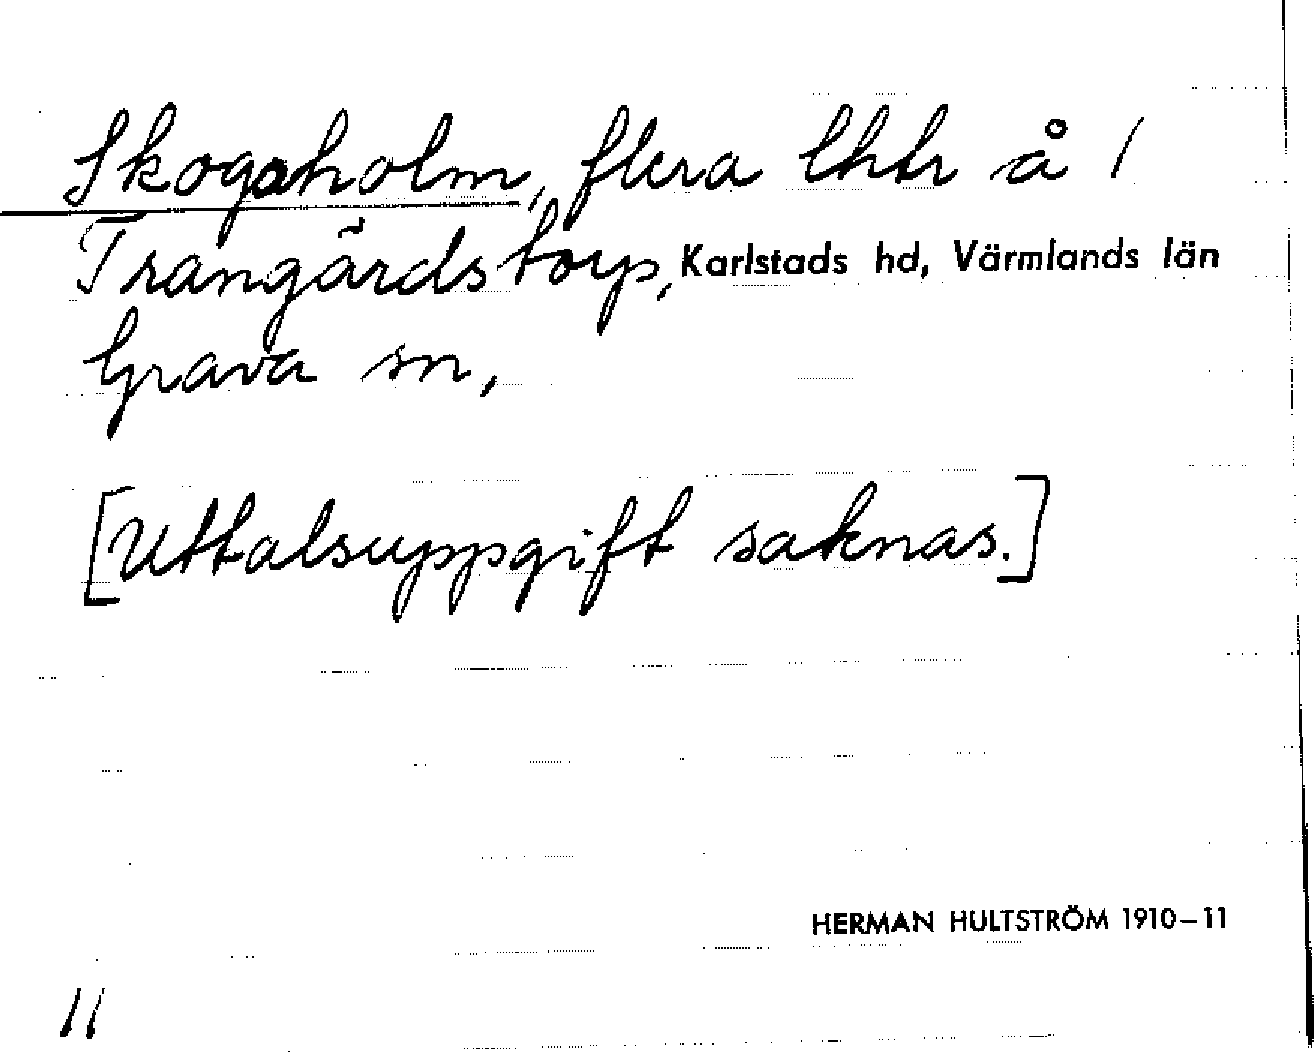 Skogsholm, flera lhtr å /
Trangärdstorp, Karlstads hd, Värmlands län
Grava sn,
[Uttalsuppgift saknas.]
HERMAN HULTSTRÖM 1910–11
11